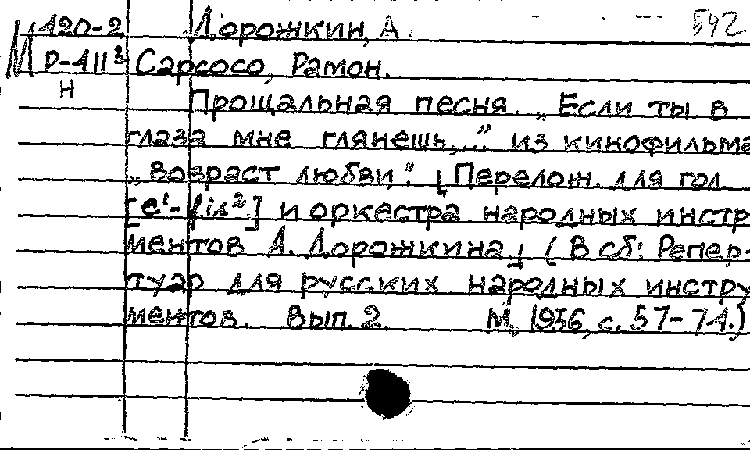 М 420-2 Дорожкин, А. 542
Р-411² Сарсосо, Рамон.
Н
Прощальная песня. „Если ты в
глаза мне глянешь..." из кинофильма
„Возраст любви". [Перелож. для гол.
[e¹-fis²] и оркестра народных инстру
ментов А. Дорожкина.] (В сб: Репер-
туар для русских народных инстру
ментов. Вып. 2. М, 1956, с. 57-74.)